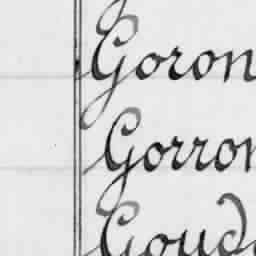 Goron
Gorron
Goud